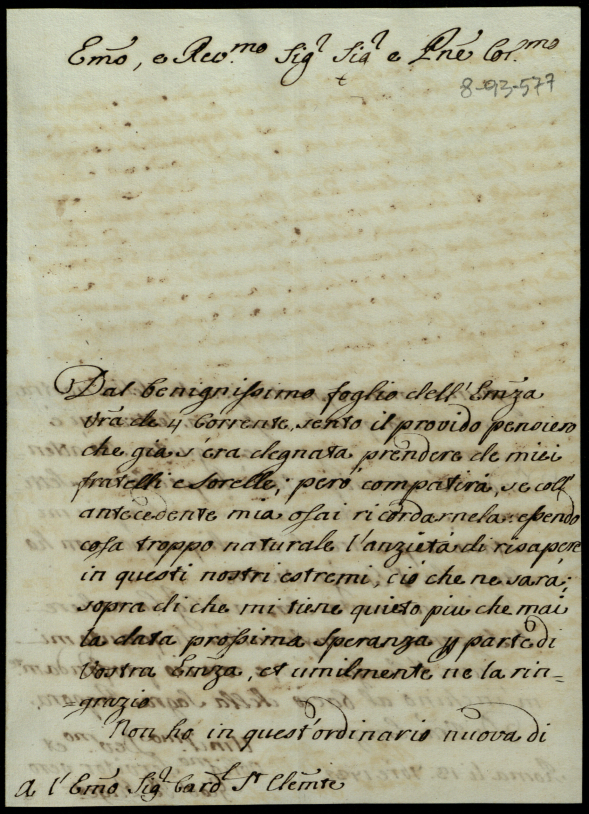 Em̃o, e Rev.mo Sig.r Sig.r e Pñe Col.mo
8-93-577
Dal benignissimo foglio dell' Em̃za
Vr̃a de 4 Corrente, sento il provido pensiero
che gia s'era degnata prendere de miei
fratelli e Sorelle; peró compatirá, se coll'
antecedente mia osai ricordarnela: essendo
cosa troppo naturale l'anzietá di risapere
in questi nostri estremi, ció che ne sará;
sopra di che mi tiene quieto piu che mai
la data prossima speranza ꝑ parte di
Vostra Em̃za, et umilmente ne la rin=
=grazio.
Non ho in quest'ordinario nuova di
A l'Em̃o Sig.r Card.l S.t Clem̃te